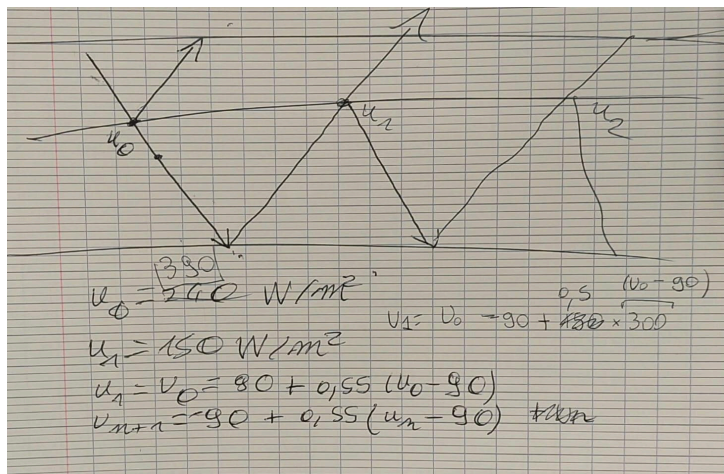 u₀
u₁
u₂
390
u₀ = 240 W/m²
0,5 (u₀-90)
u₁ = u₀ -90 + × 300
u₁ = 150 W/m²
u₁ = u₀ = 80 + 0,55 (u₀-90)
uₙ₊₁ = -90 + 0,55 (uₙ - 90)